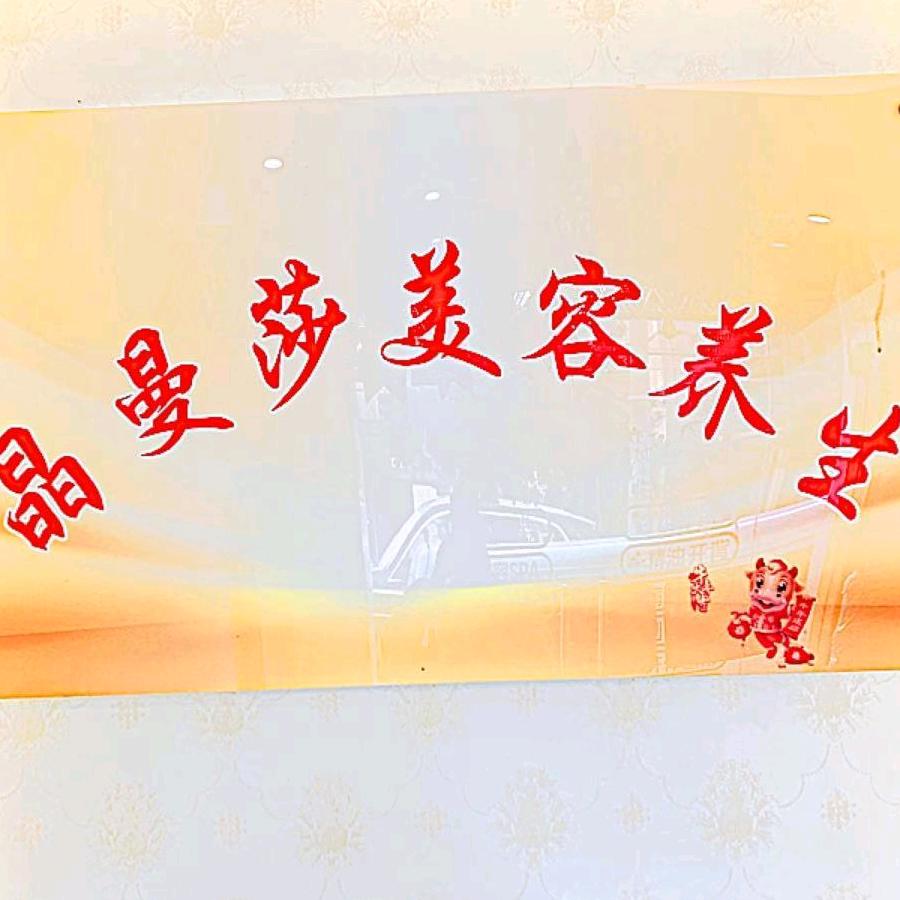 晶曼莎美容养生